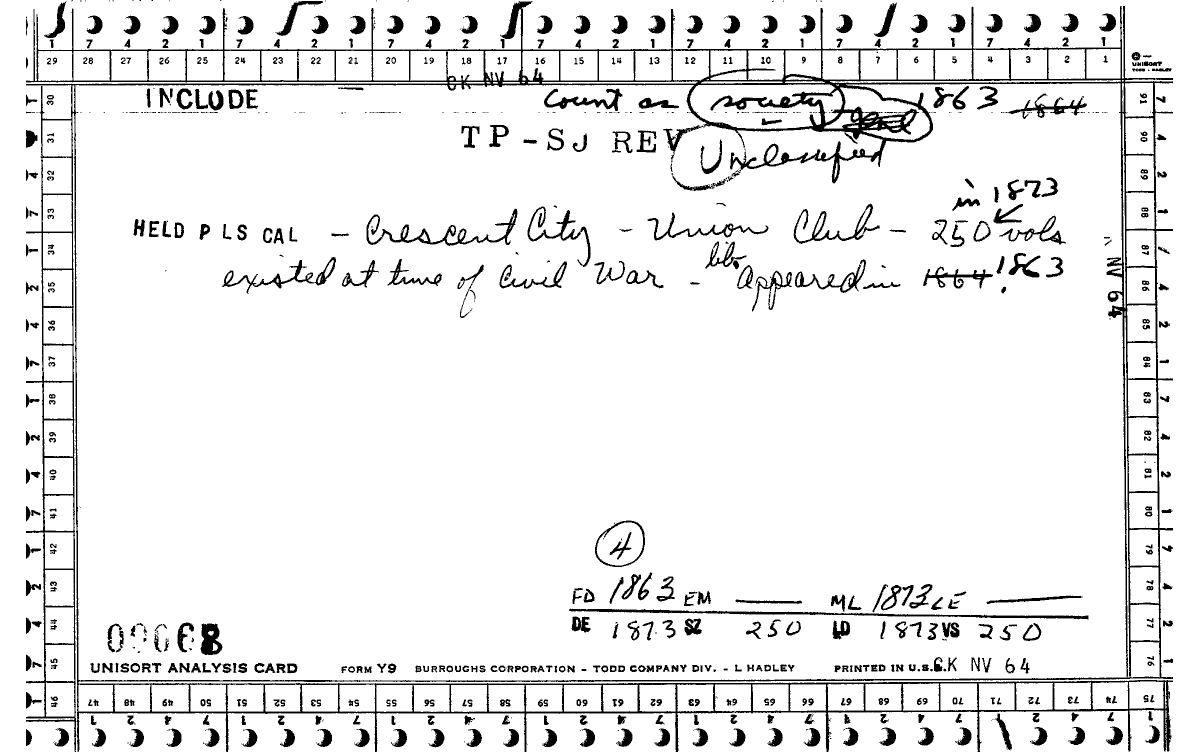 1 7 4 2 1 7 4 2 1 7 4 2 1 7 4 2 1 7 4 2 1 7 4 2 1 7 4 2 1
29 28 27 26 25 24 23 22 21 20 19 18 17 16 15 14 13 12 11 10 9 8 7 6 5 4 3 2 1
UNISORT
TODD - HADLEY
CK NV 64
INCLUDE — Count as society 1863 1864
TP-SJ REV Unclassified
in 1873
HELD P LS CAL - Crescent City - Union Club - 250 vols
existed at time of Civil War - Appeared in 1864 1863
NV 64
4
FD 1863 EM —— ML 1873 LE ——
DE 1873 SZ 250 LD 1873 VS 250
09668
UNISORT ANALYSIS CARD FORM Y9 BURROUGHS CORPORATION – TODD COMPANY DIV. – L HADLEY PRINTED IN U.S. CK NV 64
30 31 32 33 34 35 36 37 38 39 40 41 42 43 44 45 46
91 90 89 88 87 86 85 84 83 82 81 80 79 78 77 76 75
47 48 49 50 51 52 53 54 55 56 57 58 59 60 61 62 63 64 65 66 67 68 69 70 71 72 73 74